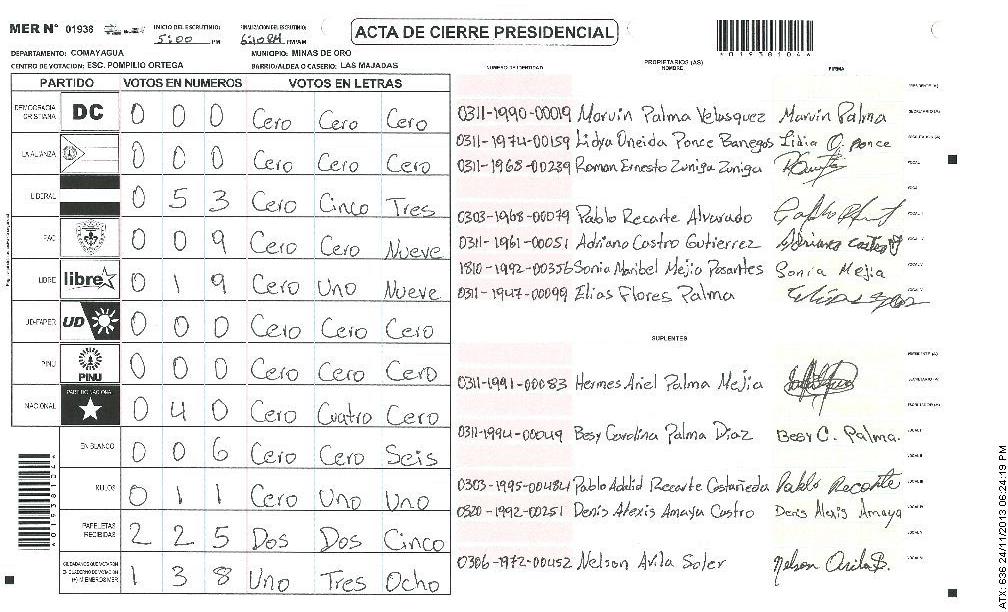 MER Nº 01938 INICIO DEL ESCRUTINIO: 5:00 PM FINALIZACION DEL ESCRUTINIO: PM/AM ACTA DE CIERRE PRESIDENCIAL
DEPARTAMENTO: COMAYAGUA MUNICIPIO: MINAS DE ORO
CENTRO DE VOTACION: ESC. POMPILIO ORTEGA BARRIO/ALDEA O CASERIO: LAS MAJADAS
*01938104*
PARTIDO VOTOS EN NUMEROS VOTOS EN LETRAS
DEMOCRACIA CRISTIANA DC 0 0 0 Cero Cero Cero
LA ALIANZA 0 0 0 Cero Cero Cero
LIBERAL 0 5 3 Cero Cinco Tres
PAC 0 0 9 Cero Cero Nueve
LIBRE libre 0 1 9 Cero Uno Nueve
UD-FAPER UD 0 0 0 Cero Cero Cero
PINU PINU 0 0 0 Cero Cero Cero
NACIONAL PARTIDO NACIONAL 0 4 0 Cero Cuatro Cero
EN BLANCO 0 0 6 Cero Cero Seis
NULOS 0 1 1 Cero Uno Uno
PAPELETAS RECIBIDAS 2 2 5 Dos Dos Cinco
CIUDADANOS QUE VOTARON EN CUADERNO DE VOTACION (+) MIEMBROS MER 1 3 8 Uno Tres Ocho
*01938104*
NUMERO DE IDENTIDAD PROPIETARIOS (AS) NOMBRE FIRMA
PRESIDENTE (A)
0311-1990-00019 Marvin Palma Velasquez Marvin Palma SECRETARIO (A)
0311-1974-00159 Lidya Oneida Ponce Banegas Lidia O. Ponce ESCRUTADOR (A)
0311-1968-00239 Roman Ernesto Zuniga Zuniga
0303-1968-00079 Pablo Recarte Alvarado
0311-1961-00051 Adriano Castro Gutierrez Adriano Castro
1810-1992-00356 Sonia Maribel Mejia Posantes Sonia Mejia
0311-1947-00099 Elias Flores Palma
SUPLENTES
PRESIDENTE (A)
0311-1991-00083 Hermes Ariel Palma Mejia SECRETARIO (A)
ESCRUTADOR (A)
0311-1994-00049 Besy Carolina Palma Diaz Besy C. Palma.
0303-1995-00484 Pablo Adalid Recarte Castañeda Pablo Recarte
0320-1992-00251 Denis Alexis Amaya Castro Denis Alexis Amaya
0306-1972-00452 Nelson Avila Soler Nelson Avila S.
ATX: 636 24/11/2013 06:24:19 PM